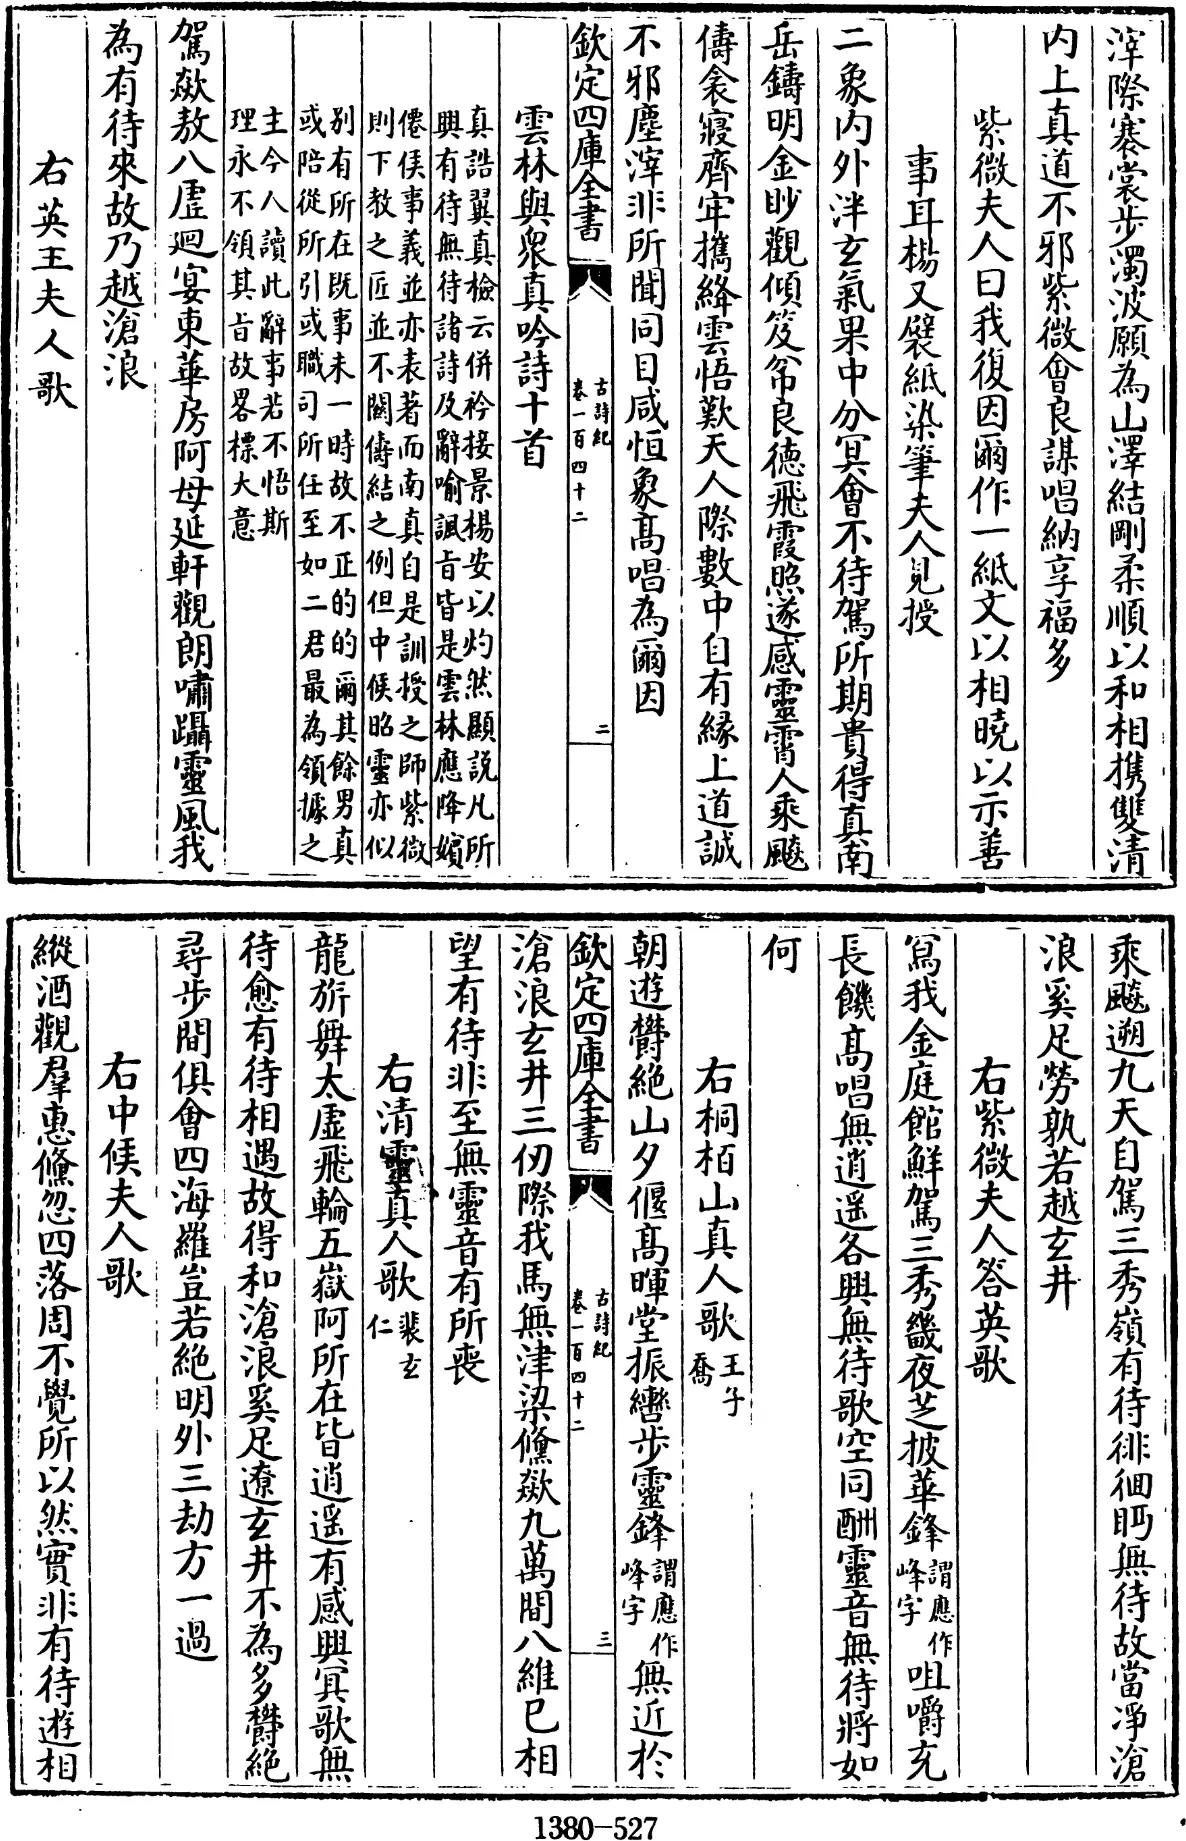 滓際褰裳步濁波願為山澤結剛柔順以和相攜雙清
内上真道不邪紫微會良謀唱納享福多
紫微夫人曰我復因爾作一紙文以相曉以示善
事耳楊又襞紙染筆夫人見授
二象内外泮玄氣果中分冥會不待駕所期貴得真南
岳鑄明金眇觀傾笈帉良德飛霞照遂感靈霄人乘飈
儔衾寢齊牢攜絳雲悟歎天人際數中自有緣上道誠
不邪塵滓非所聞同目咸恒象髙唱為爾因
欽定四庫全書
古詩紀
卷一百四十二
二
雲林與衆真吟詩十首
真誥翼真檢云併衿接景楊安以灼然顯說凡所
興有待無待諸詩及辭喻諷旨皆是雲林應降嬪
僊僕事義並亦表著而南真自是訓授之師紫微
則下教之匠並不關儔結之例但中候昭靈亦似
别有所在既事未一時故不正的的爾其餘男真
或陪從所引或職司所任至如二君最為領據之
主今人讀此辭事若不悟斯
理永不領其旨故畧標大意
駕欻敖八虛迴宴東華房阿母延軒觀朗嘯躡靈風我
為有待來故乃越滄浪
右英王夫人歌
乘飈遡九天自駕三秀嶺有待徘徊眄無待故當淨滄
浪奚足勞孰若越玄井
右紫微夫人答英歌
寫我金庭館解駕三秀畿夜芝披華鋒謂應作
峰字咀嚼充
長饑髙唱無逍遥各興無待歌空同酬靈音無待將如
何
右桐栢山真人歌王子
喬
朝遊欝絶山夕偃髙暉堂振轡步靈鋒謂應作
峰字無近於
欽定四庫全書
古詩紀
卷一百四十二
三
滄浪玄井三仞際我馬無津梁儵欻九萬間八維已相
望有待非至無靈音有所喪
右清靈真人歌裴玄
仁
龍旂舞太虛飛輪五嶽阿所在皆逍遥有感興冥歌無
待愈有待相遇故得和滄浪奚足遼玄井不為多欝絶
尋步間俱會四海羅豈若絶明外三劫方一過
右中候夫人歌
縱酒觀羣惠儵忽四落周不覺所以然實非有待遊相
1380-527